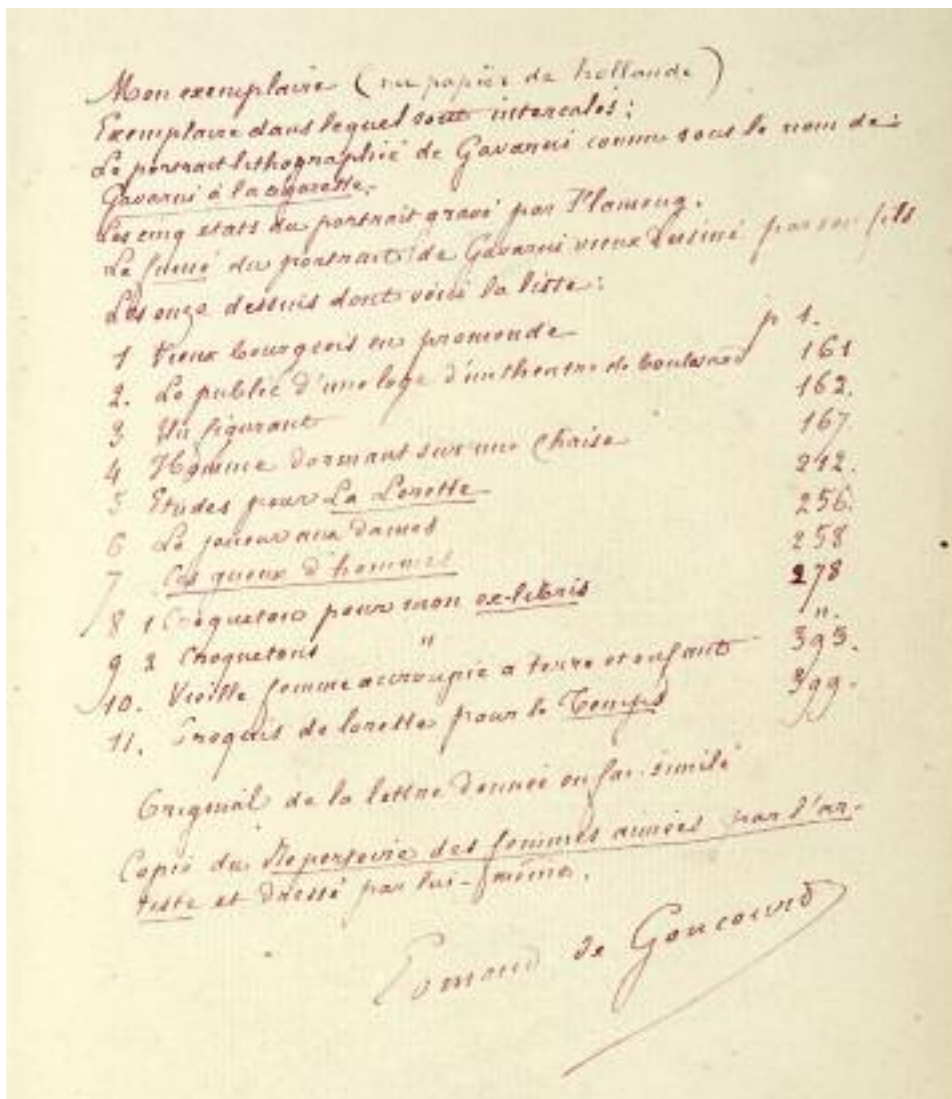 Mon exemplaire (sur papier de hollande)
Exemplaire dans lequel sont intercalés :
Le portrait lithographié de Gavarni connu sous le nom de :
Gavarni à la cigarette.
Les cinq états du portrait gravé par Flameng.
Le fumé du portrait de Gavarni vieux dessiné par son fils
Les onze dessins dont voici la liste :
1 Vieux bourgeois en promenade p 1.
2. Le public d'une loge d'un theatre de boulevard 161
3 Un figurant 162.
4 Homme dormant sur une chaise 167.
5 Etudes pour La Lorette 212.
6 Le joueur aux dames 256.
7 Ces gueux d'hommes 258
8 1 Croqueton pour mon ex-libris 278
9 2 Croquetons " ".
10. Vieille femme accroupie a terre et enfant 393.
11. Croquis de lorette pour le Temps 399.
Original de la lettre donnée en fac-similé
Copie du Repertoire des femmes aimées par l'ar-
tiste et dressé par lui-même.
Edmond de Goncourt